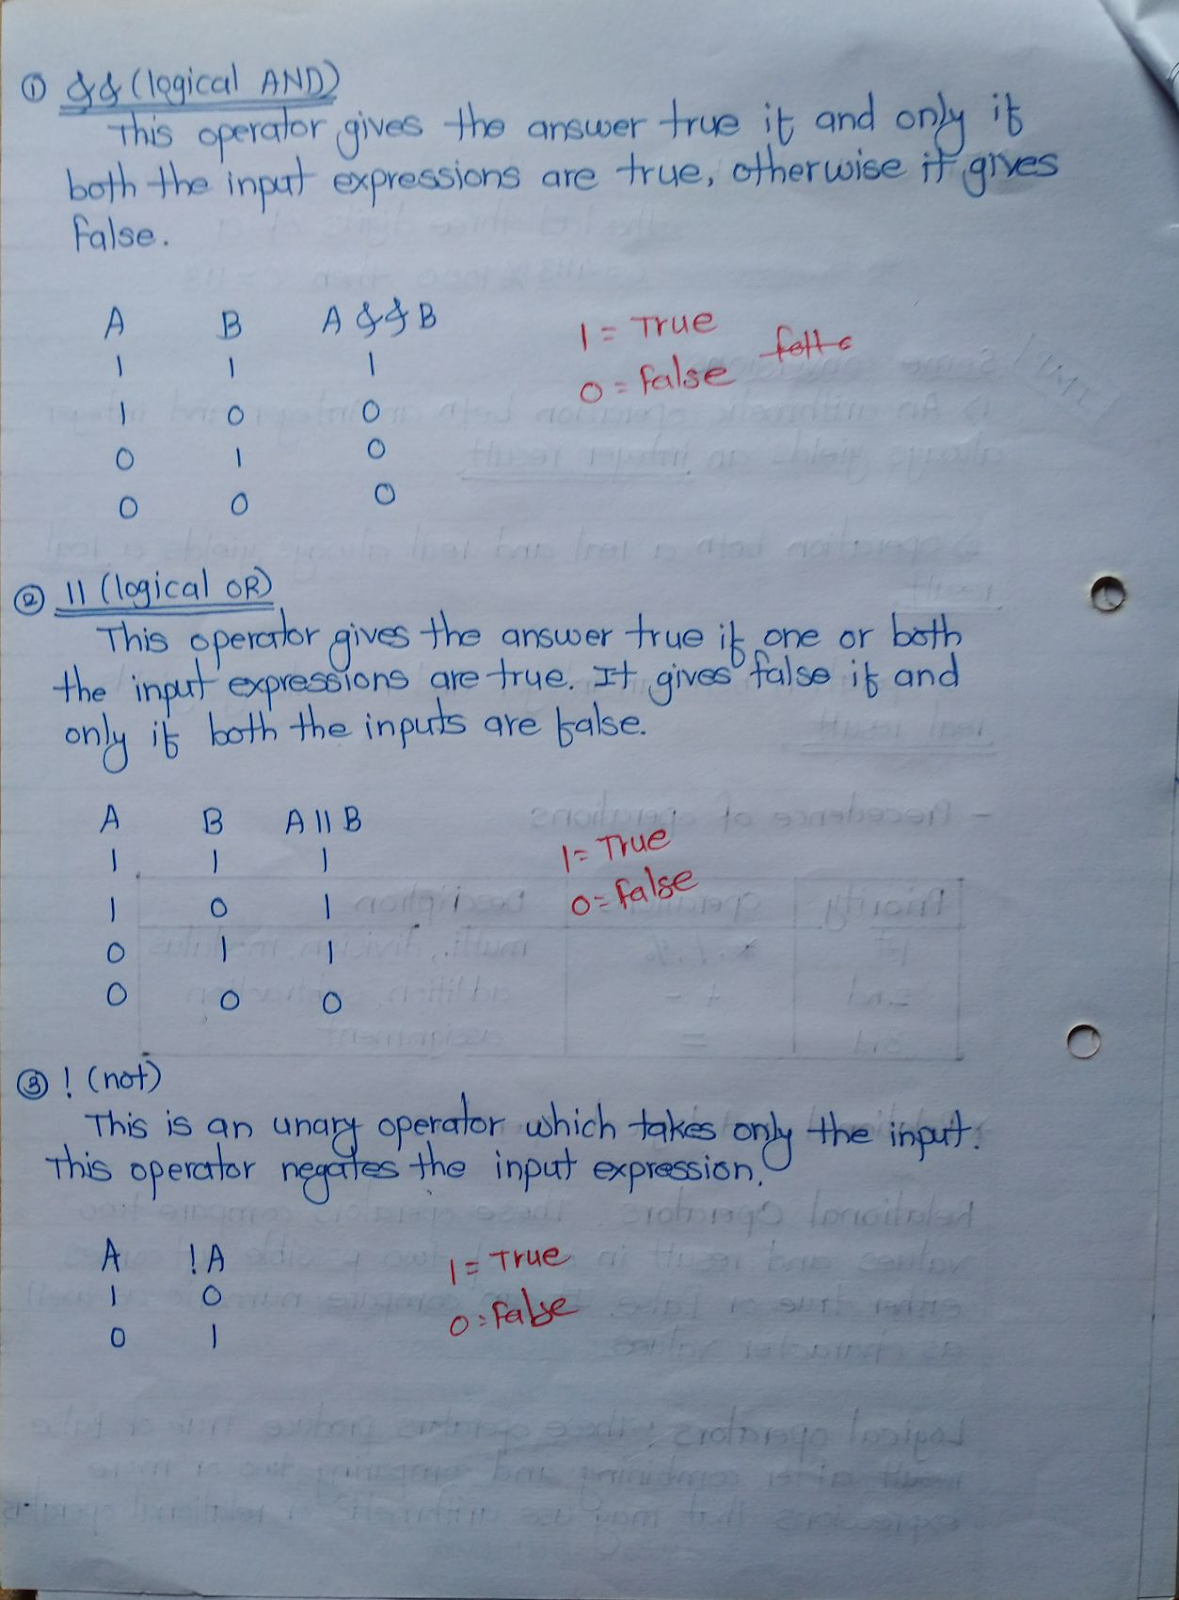 ① && (logical AND)
This operator gives the answer true if and only if
both the input expressions are true, otherwise it gives
False.
A B A && B
1 1 1
1 0 0
0 1 0
0 0 0
1 = True
0 = false
② || (logical OR)
This operator gives the answer true if one or both
the input expressions are true. It gives false if and
only if both the inputs are false.
A B A || B
1 1 1
1 0 1
0 1 1
0 0 0
1 = True
0 = false
③ ! (not)
This is an unary operator which takes only the input.
This operator negates the input expression.
A !A
1 0
0 1
1 = True
0 = false